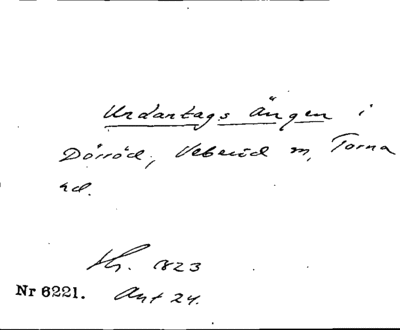 Undantags ängen i
Dörröd, Veberöd m, Torna
hd.
1823
Nr 6221. Ant 24.